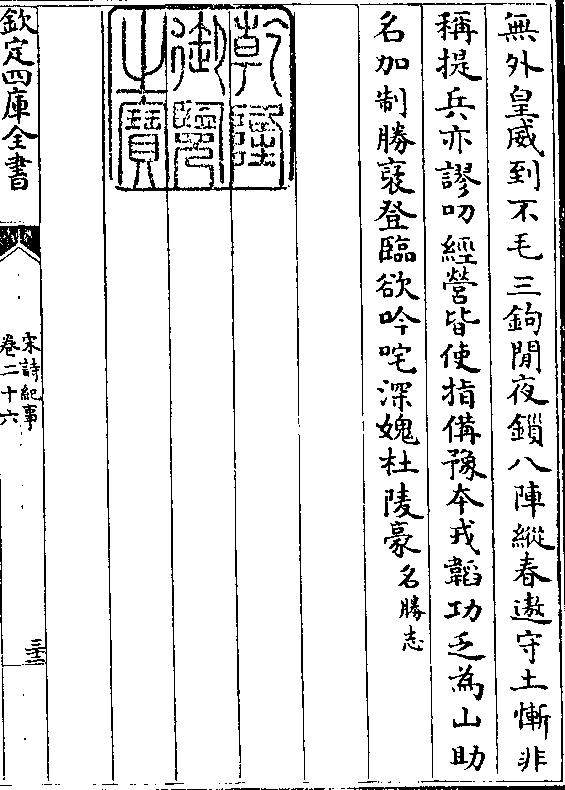 無外皇威到不毛三鉤閒夜鎖八陣縱春遨守土慚非
稱提兵亦謬叨經營皆使指備豫本戎韜功乏為山助
名加制勝襃登臨欲吟咤深媿杜陵豪名勝志
乾隆御覽之寶
欽定四庫全書
宋詩紀事
卷二十六